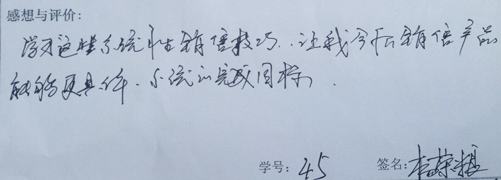 感想与评价:
学习这些系统性销售技巧.让我今后销售产品
能够更具体.系统的完成目标.
学号: 45 签名: